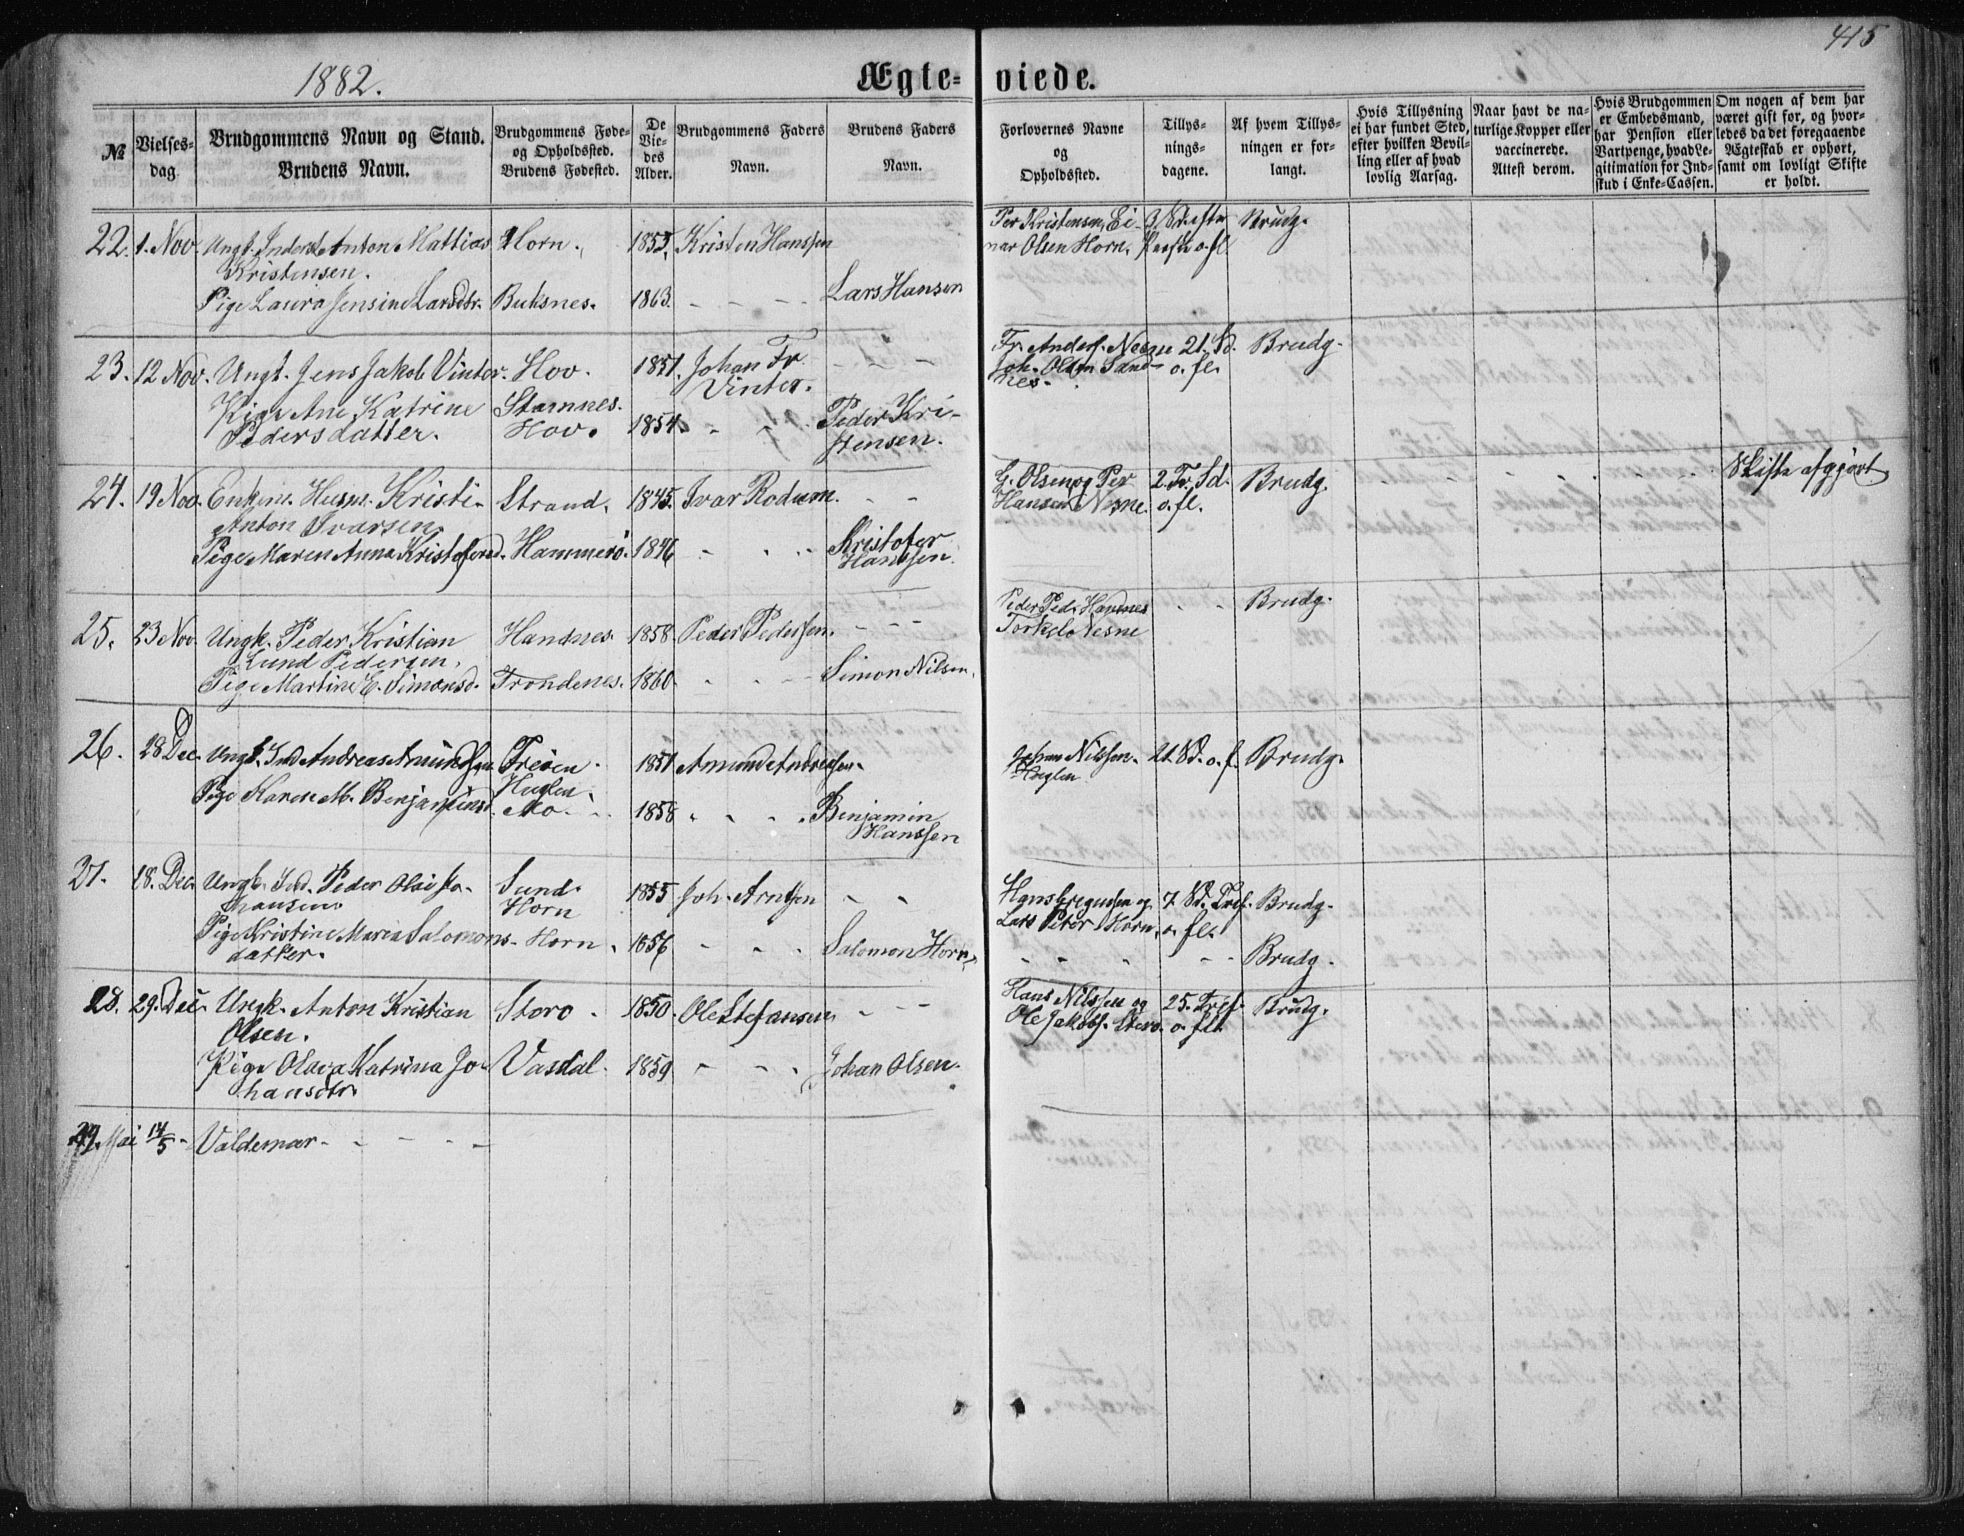 415
1882.
Ægte=viede.
№
Vielses-
dag.
Brudgommens Navn og Stand.
Brudens Navn.
Brudgommens Føde-
og Opholdssted.
Brudens Fødested.
De
Vie-
des
Alder.
Brudgommens Faders
Navn.
Brudens Faders
Navn.
Forlovernes Navne
og
Opholdssted.
Tillys-
nings-
dagene.
Af hvem Tillys-
ningen er for-
langt.
Hvis Tillysning
ei har fundet Sted,
efter hvilken Bevil-
ling eller af hvad
lovlig Aarsag.
Naar havt de na-
turlige Kopper eller
vaccinerede.
Attest derom.
Hvis Brudgommen
er Embedsmand,
har Pension eller
Vartpenge, hvad Le-
gitimation for Ind-
skud i Enke-Cassen.
Om nogen af dem har
været gift før, og hvor-
ledes da det foregaaende
Ægteskab er ophørt,
samt om lovligt Skifte
er holdt.
22. 1. Nov. Ungk. Anton Mattias Horn. 1855. Kristen Hanssen
Kristensen.
Pige Laura Jensine Larsdtr. Buksnes. 1863. - - - - Lars Hansen
Per Kristensen, Ei-
nar Olsen Horn. o. fl. Brudg.
23. 12 Nov. Ungk. Jens Jakob Vinter. Hov. 1851. Johan Fr. - - -
Vinter.
Pige Ane Katrine Stamnes. Peder Kri-
Pedersdatter. Hov. 1854. - - stensen.
Fr. Anders. Nesne 21. Sd. Brudg.
Joh. Olsen Sand- o. fl.
nes.
24. 19 Nov. Enkem. Husm. Kristi- Strand. 1845. Ivar Rodum. - -
Anton Ivarsen.
Pige Maren Anna Kristofersd. Hammerö. 1846 - - - Kristofer
Hanssen.
G. Olsen og Per 2. Tr. Sd. Brudg. Skifte afgjort
Hansen Nesne. o. fl.
25. 23 Nov. Ungk. Peder Kristian Handnes. 1858. Peder Pedersen. - - -
Lund Pedersen.
Pige Martine E. Simonsd. Trondenes. 1860. - - - Simon Nilsen.
Peder Ped. Handnes - - Brudg.
Nesne
26. 28 Dec. Ungk. Ind Andreas Amundsen Freien. 1851 Amund Andreassen.
Huglen.
Pige Karen M. Benjaminsd. Mo. 1858 - - - Benjamin
Hanssen
Johan Nilssen. 21. Sd. o. f. Brudg.
Huglen
27. 28. Dec. Ungk. Ind. Peder Olai Jo- Sund. 1855 Joh. Arntsen - -
hansen. Horn
Pige Kristine Maria Salomons- Horn. 1856 - - - Salomon Horn
datter.
Hans Gregusen og 7. Sd. Tref. Brudg.
Lars Peter Horn. o. fl.
- - - - - Brudg.
28. 29. Dec. Ungk. Anton Kristian Storo. 1850. Ole Stefansen - - -
Olsen.
Pige Olava Katrina Jo- Vasdal. 1859 - - - Johan Olsen.
hansdtr.
Hans Nilssen og 25. Tref. Brudg.
Ole Jakobs. Storo. o. fl.
29. Mai 14/5 - Valdemar - - - - -